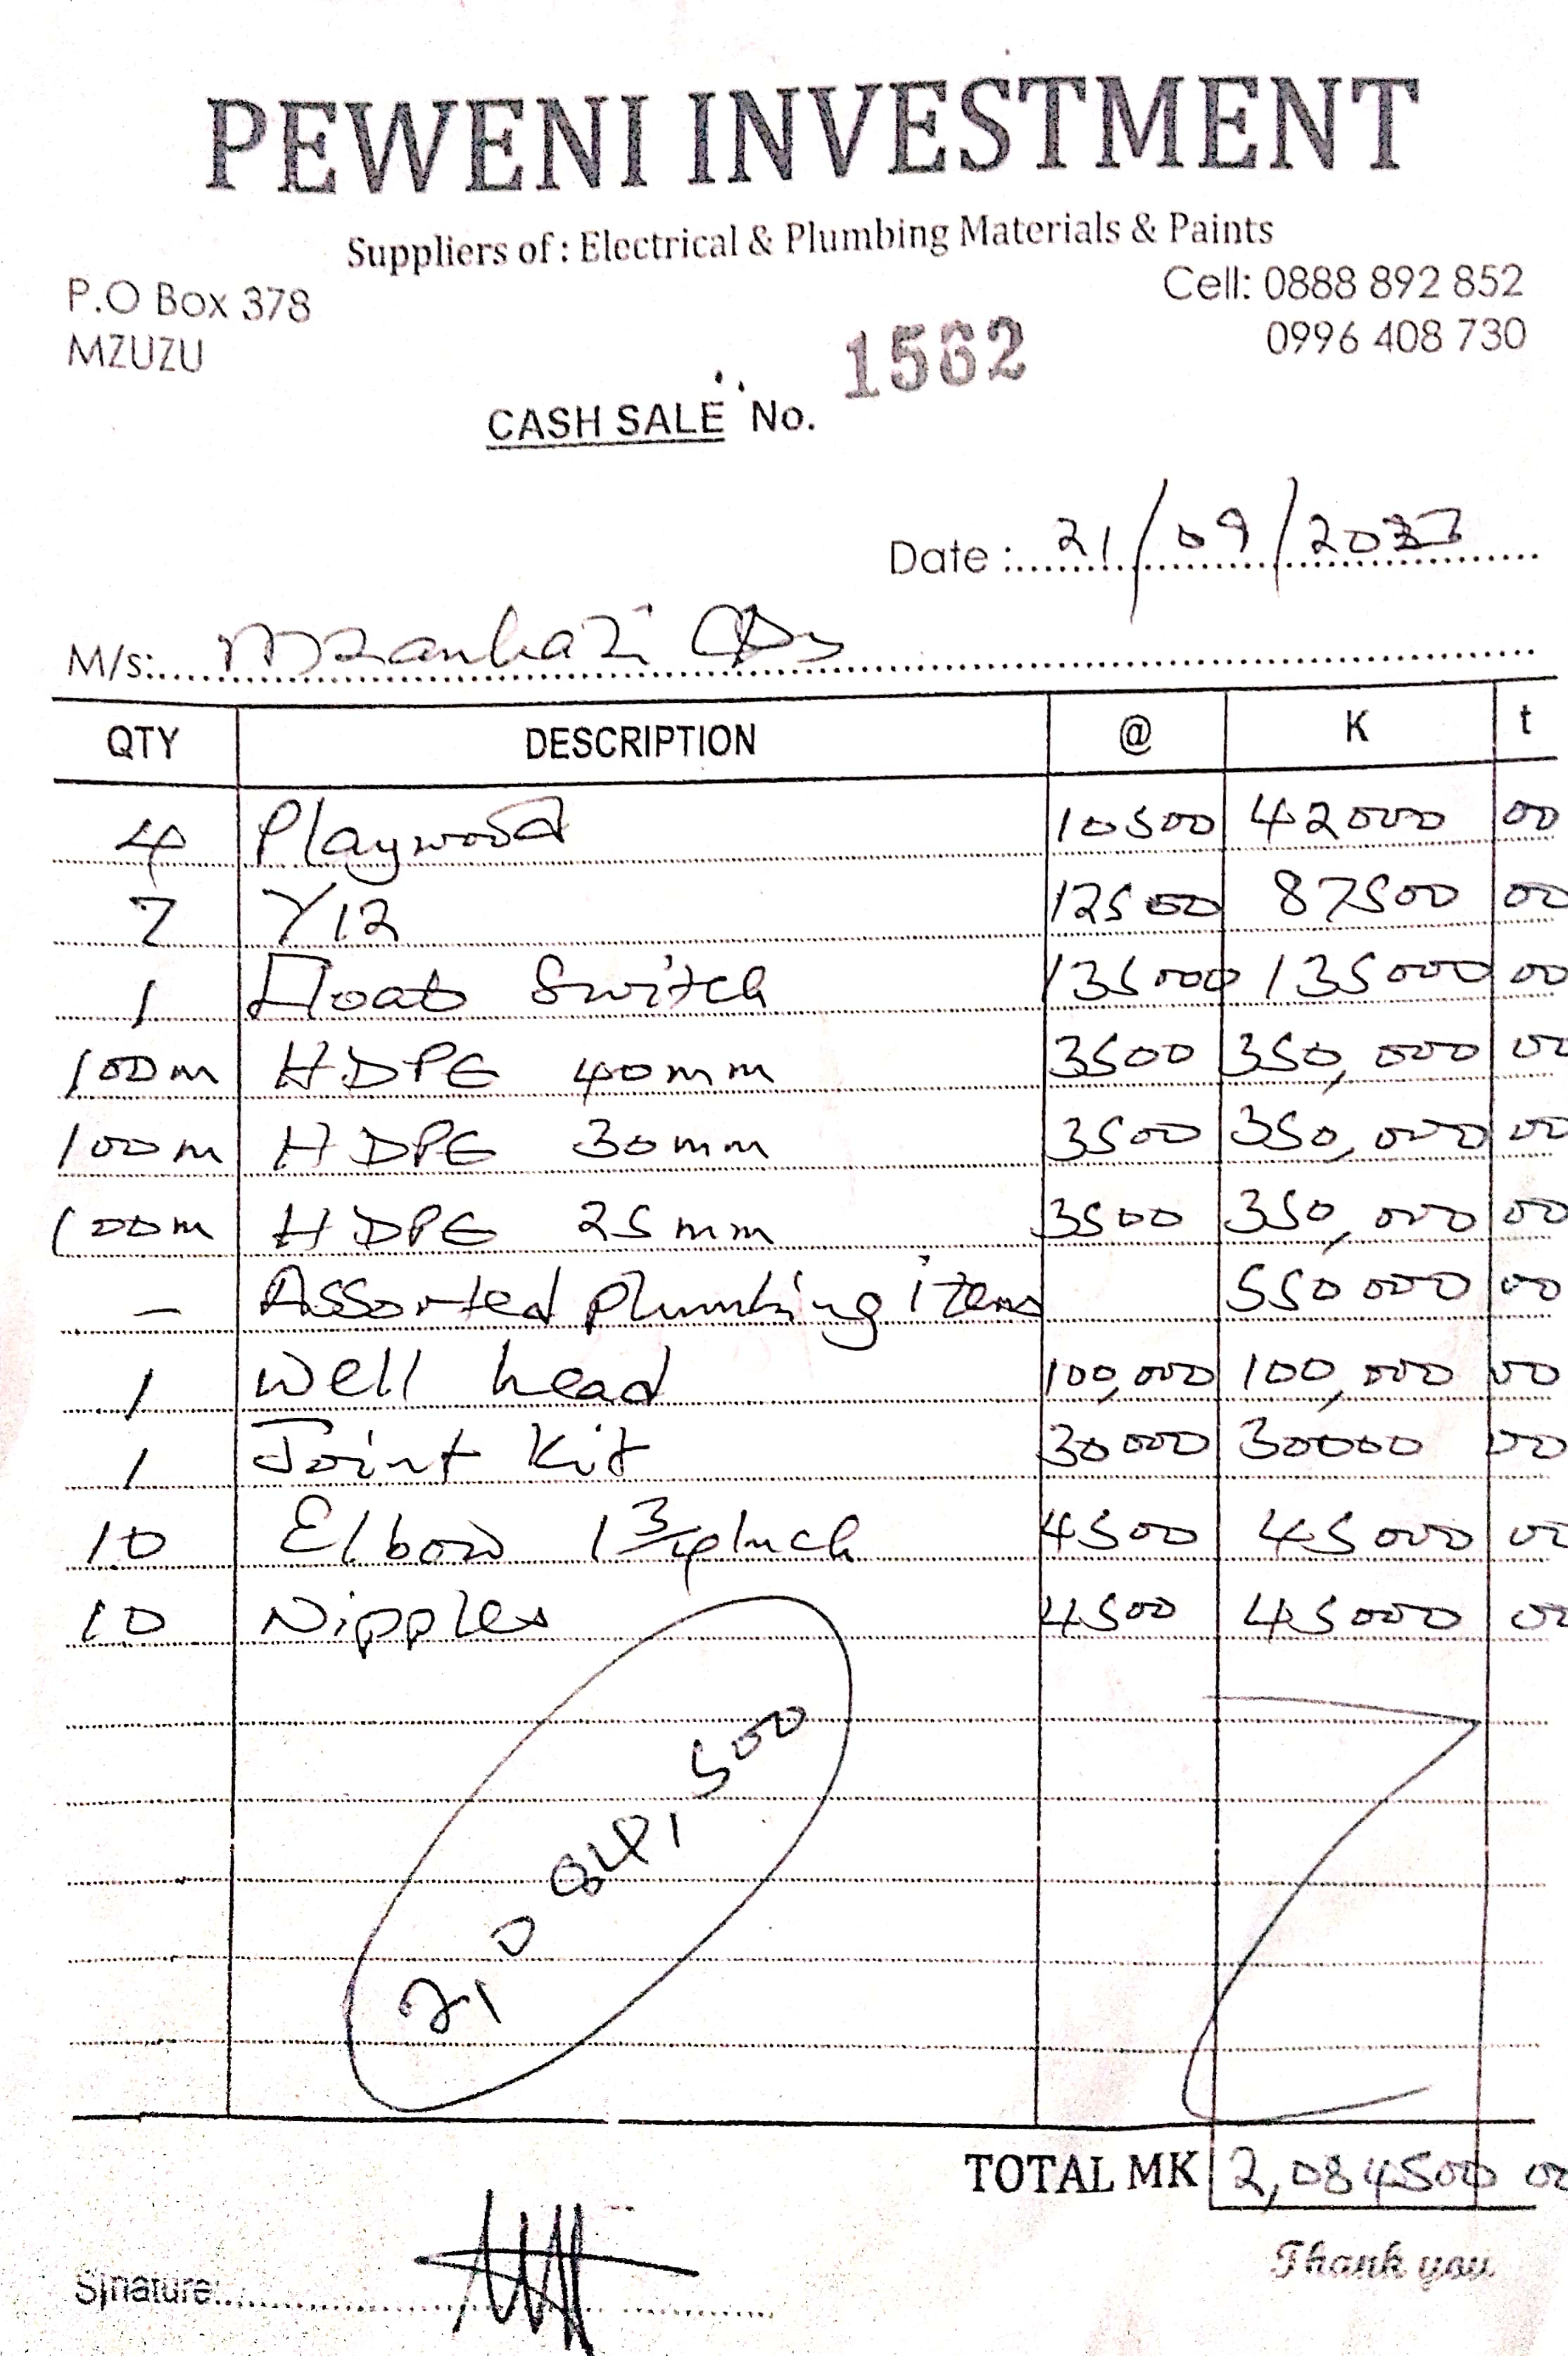 PEWENI INVESTMENT
Suppliers of : Electrical & Plumbing Materials & Paints
P.O Box 378 Cell: 0888 892 852
MZUZU 0996 408 730
CASH SALE No. 1562
Date : 21/09/2023
M/s:
QTY DESCRIPTION @ K t
4 Playwood 10500 42000 00
7 Y12 12500 87500 00
1 Float Switch 135000 135000 00
100m HDPE 40mm 3500 350,000 00
100m HDPE 30mm 3500 350,000 00
100m HDPE 25mm 3500 350,000 00
— Assorted plumbing items 550000 00
1 Well head 100,000 100,000 00
1 Joint Kit 30000 30000 00
10 Elbow 1 3/4 Inch 4500 45000 00
10 Nipples 4500 45000 00
TOTAL MK 2,084500 00
Thank you
Sinature: